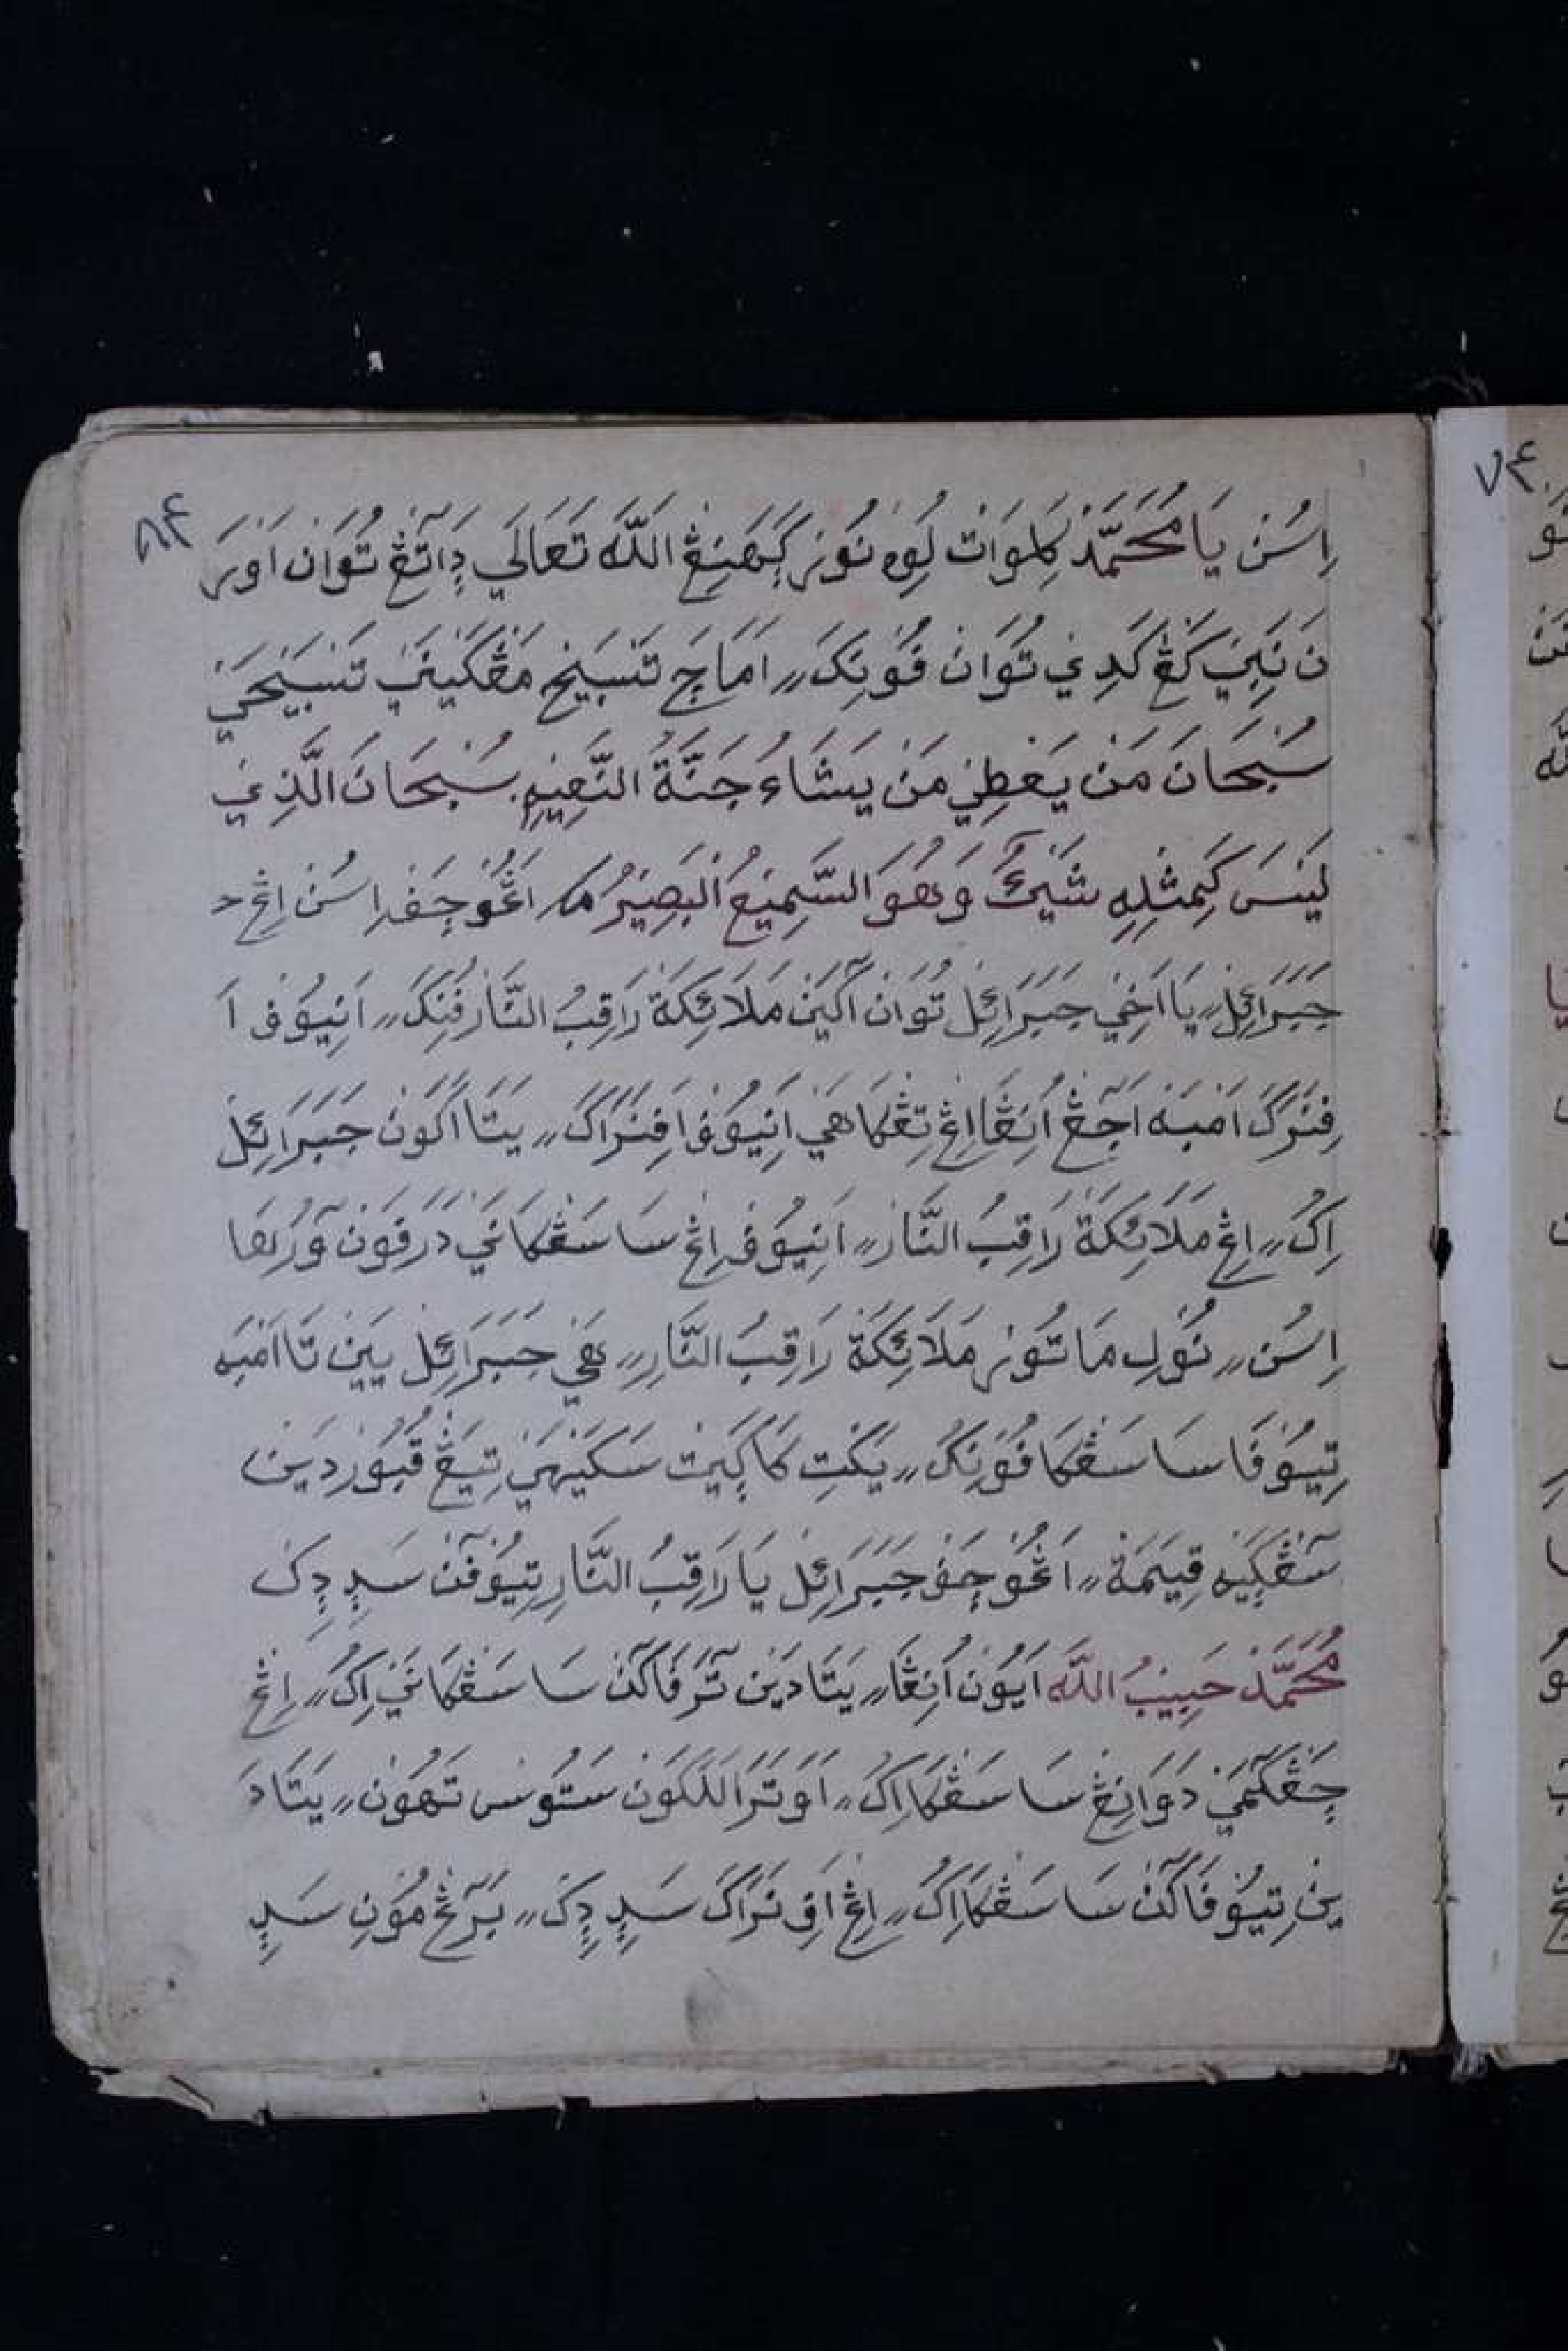 ٨٤
اِسُنْ يَا مُحَمَّدْ كَلِوَاتْ لُوِهْ نُوْنْ ڮَهَنِڠْ اللّٰهْ تَعَالَى دٍَاتَڠْ تُوَانْ اَوْرَ
نَ نَبِيْ كَڠْ كَدِيْ تُوَانْ فُوْنِكَ〃 اَمَاچَ تَسْبِيْحْ مَڠْكَيْنَيْ تَسْبِيْحَيْ
سُبْحَانَ مَنْ يَعْطِيْ مَنْ يَشَاءُ جَنَّةُ النَّعِيْمِ سُبْحَانَ الَّذِيْ
لَيْسَ كَمِثْلِهِ شَيْءٌ وَهُوَ السَّمِيْعُ الْبَصِيْرُ اَڠُوْچَفْ اِسُنْ اِڠْ
جَبَرَائِلْ〃 يَا اَخِيْ جَبَرَائِلْ تُوَانْ اَكَيْنْ مَلَائِكَةْ رَاقِبُ النَّارْ فُنِكَ〃 اَنِيُوْفْ اَ
فِنَرَكَ اَمْبَهْ اَجَڠْ اِڠْ تِڠْكَاهَيْ اَنِيُوْفْ اَفِنَرَاكَ〃 يَتَا اَكَوْنْ جَبَرَائِلْ
اِكُ〃 اِڠْ مَلَائِكَةْ رَاقِبُ النَّارْ〃 اَنِيُوْفْ اِڠْ سَاسَڠْكَانَيْ
اِسُنْ〃 نُوْلِ مَاتُوْرْ مَلَائِكَةْ رَاقِبُ النَّارِ〃 هَيْ جَبَرَائِلْ يَيْنْ تَا اَمْبَهْ
تِيُوْفَا سَاسَڠْكَا فُوْنِكُ〃 يَكْتِ كَاڮَيْتْ سَكَيْهَيْ تِيَڠْ قُبُوْرْ دَيْنْ
سَڠْڮَيْهْ قِيَمَةْ〃 اَڠُوْچَفْ جَبَرَائِلْ يَا رَاقِبُ النَّارِ تِيُوْفَنْ سَدٍِدٍِكْ
مُحَمَّدْ حَبِيْبُ اللّٰهْ اَيُوْنْ اَنِڠَا〃 يَتَا دَيْنْ تَرَفَاكَنْ سَاسَڠْكَانَيْ اِكُ〃 اِڠْ
چَڠْكَمَيْ دَوَانِڠْ سَاسَڠْكَا اِكُ〃 اَوْتَرَا لَلَكَوْنْ سَتُوْسْ تَهُوْنْ〃 يَتَا دَ
يْنْ تِيُوْفَاكَنْ سَاسَڠْكَا اِكُ〃 اِڠْ اَفِ نَرَاكَ سَدٍِدٍِكْ〃 بَرَڠْ مُوْنِ سَدٍِ
٧٤